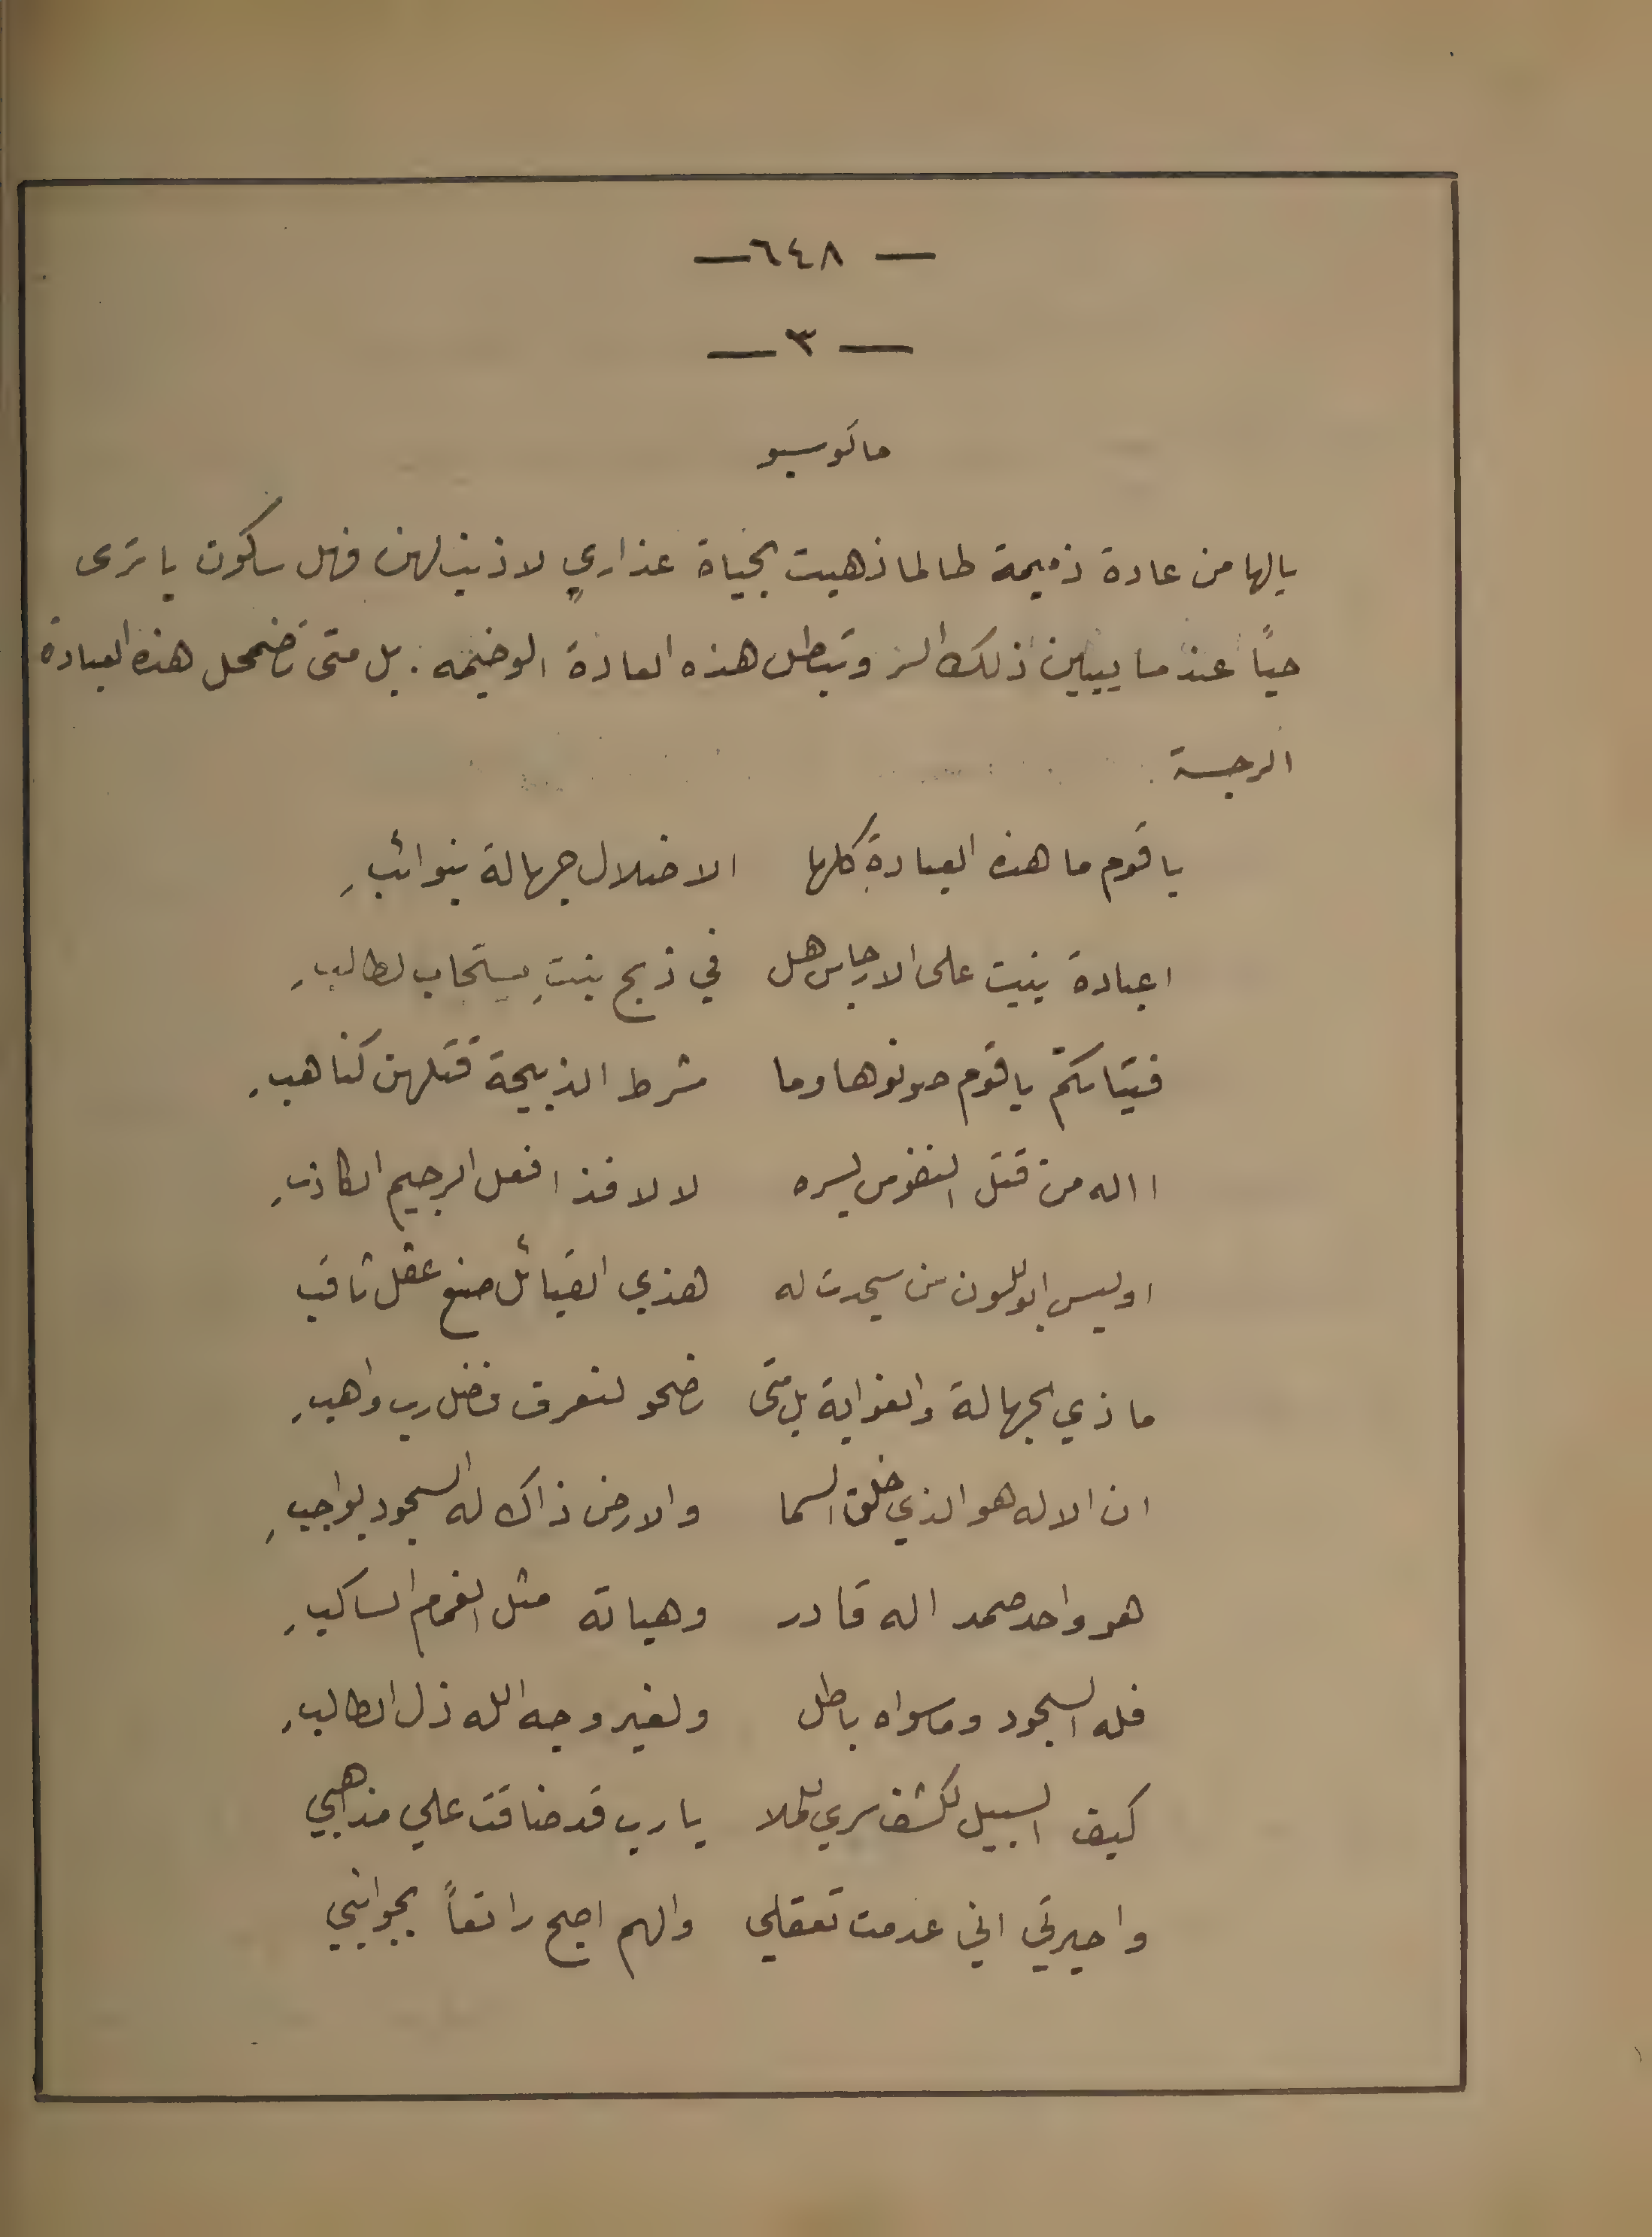 — ٦٤٨ —
— ٣ —
ماكوسيو
يالها من عادة ذميمة طالما ذهبت بحياة عذاري لا ذنب لهن فهل ساكون يا ترى
حياً عندما يبين ذلك السر وتبطل هذه العادة الوخيمه . بل متى تضمحل هذه العبادة
الرجسة .
يا قوم ما هذه العبادة كلها الا ضلال جهالة بنوائبِ
اعبادة بنيت على الارجاس هل في ذبح بنتٍ يستجاب لطالبِ
فتياتكم يا قوم صونوها وما شرط الذبيحة قتلهن كناهبِ
االه من قتل النفوس يسره لا لا فذا فعل الرجيم الكاذبِ
اوليس ابوللون من سجدت له هذي القبائل صنع عقل ثاقب
ما ذي الجهالة والغواية بل متى نضحو لنعرف فضل رب واهبِ
ان الاله هو الذي خلق السما والارض ذاك له السجود بواجبِ
هو واحد صمد اله قادر وهباته مثل الغمام الساكبِ
فله السجود وما سواه باطل ولغير وجه الله ذل الطالبِ
كيف السبيل لكشف سري للملا يا رب قد ضاقت علي مذاهبي
واحيرتي اني عدمت تعقلي والهم اصبح راتعاً بجوانبي